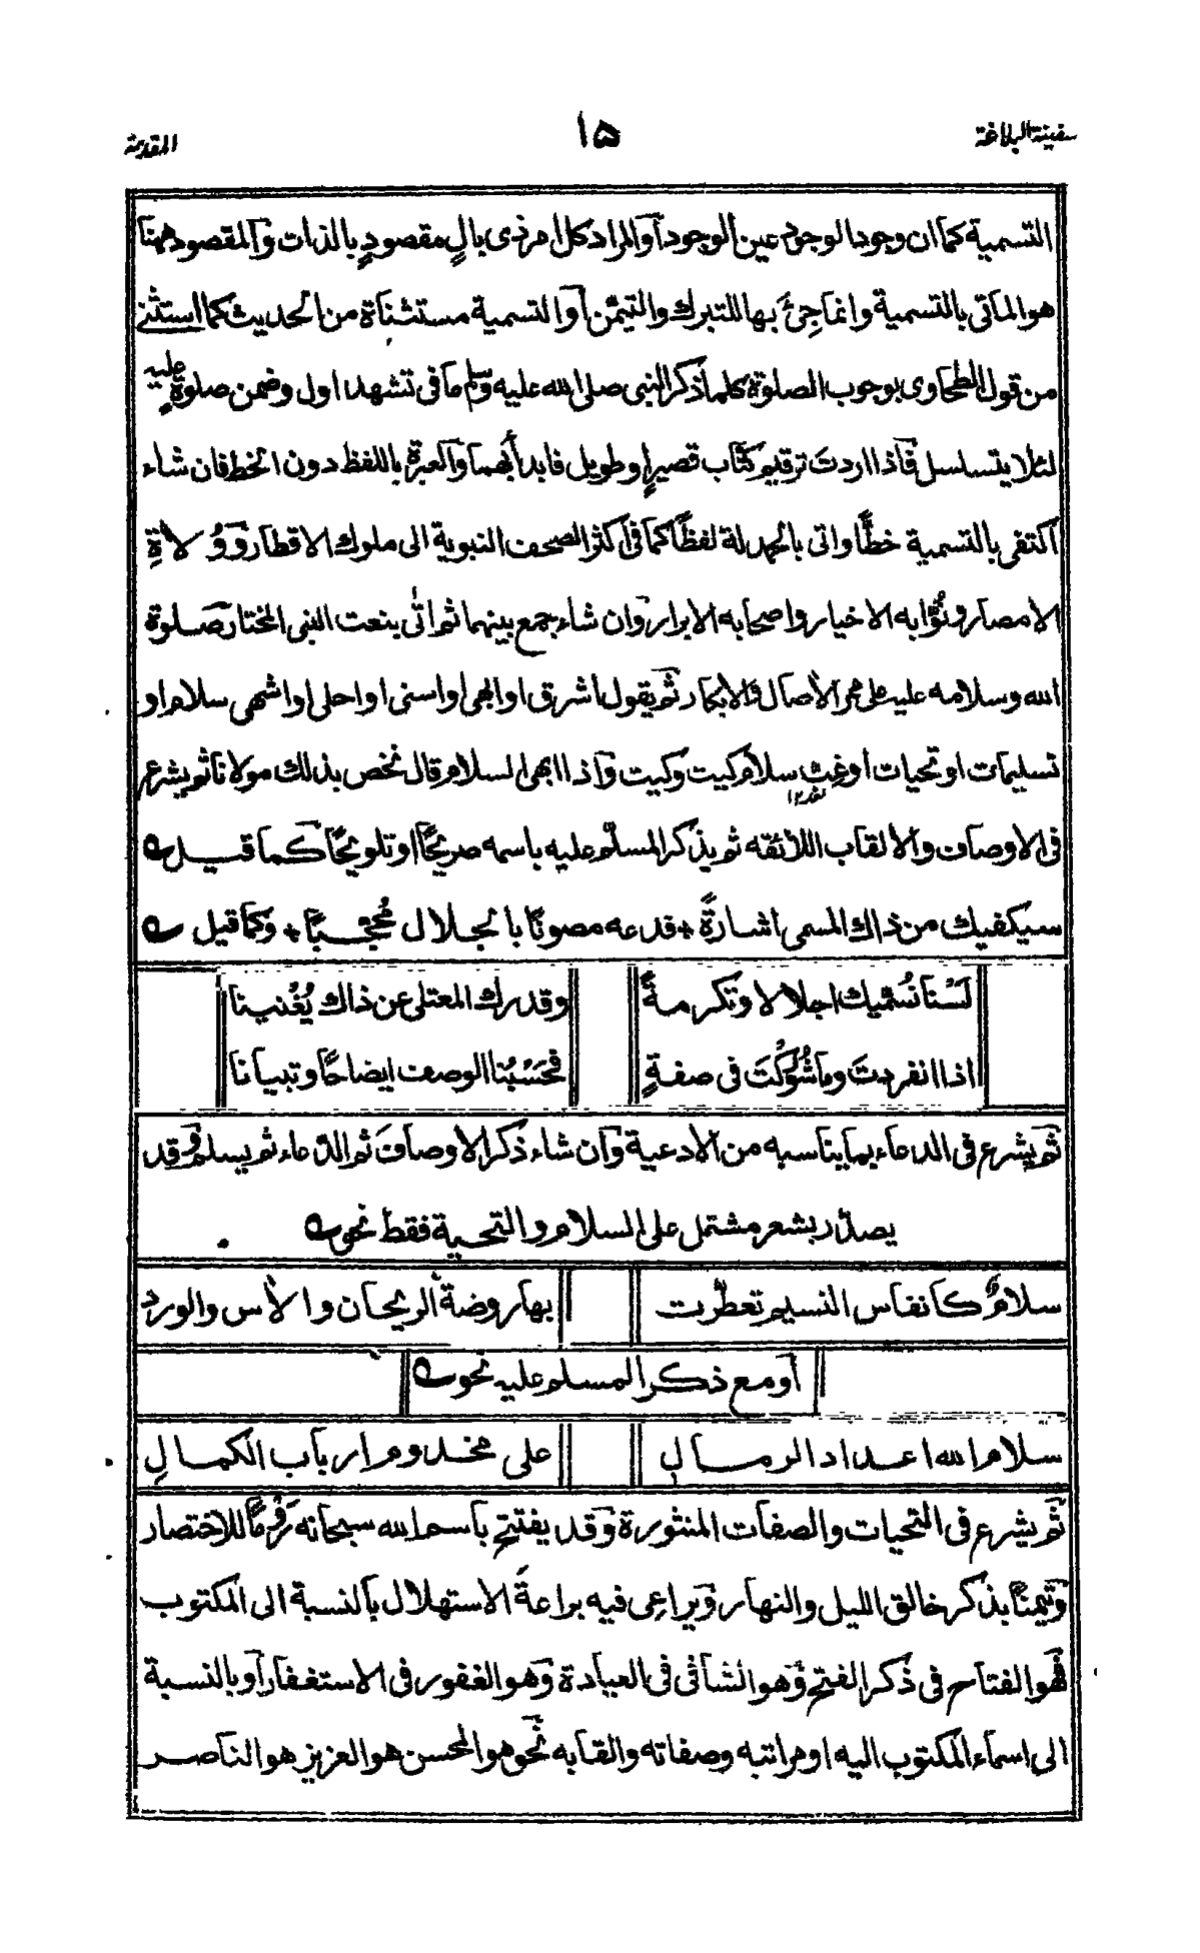 سفينة البلاغة
١٥
المقدمة
التسمية كما ان وجود الوجود عين الوجود أو المراد كل امر ذى بالٍ مقصودٍ بالذات والمقصود ههنا
هو المأتى بالتسمية وانما جئ بها للتبرك والتيمّن أو التسمية مستثناة من الحديث كما استثنے
من قول الطحاوى بوجوب الصلوة كلما ذكر النبى صلى الله عليه وسلم ما فى تشهد اول وضمن صلوةٍ عليه
لئلا يتسلسل فاذا اردت ترقيم كتاب قصيرٍ او طويل فابدأ بهما والعبرة باللفظ دون الخط فان شاء
اكتفى بالتسمية خطًّا واتى بالحمدلة لفظًا كما فى اكثر الصحف النبوية الى ملوك الاقطار ووُلاةِ
الامصار ونُوّابه الاخيار واصحابه الابرار وان شاء جمع بينهما ثم اتٰى بنعت النبى المختار صلوة
الله وسلامه عليه على ممر الأصال والابكار ثم يقول اشرق او ابهى او اسنى او احلى او اشهى سلام او
تسليمات او تحيات او غِبّ سلام كيت وكيت واذا ابهى السلام قال نخص بذلك مولانا ثم يشرع
فى الاوصاف والالقاب اللائقه ثم يذكر المسلّم عليه باسمه صريحًا او تلويحًا كما قيل
سيكفيك من ذاك المسمى اشارةً + فدعه مصونًا بالجلال مُحجّبًا + وكما قيل
لَسْنَا نُسَمّيك اجلالا وتكرمةً وقدرك المعتلى عن ذاك يُغْنينا
اذا انفردتَ وما شُوْرِكْتَ فى صفةٍ فَحَسْبُنا الوصف ايضاحًا وتبيانا
ثم يشرع فى الدعاء بما يناسبه من الادعية وان شاء ذكر الاوصاف ثم الدعاء ثم يسلم وقد
يصدّر بشعر مشتمل على السلام والتحية فقط نحو
سلامٌ كانفاس النسيم تعطّرت بها روضة الريحان والأس والورد
أو مع ذكر المسلم عليه نحو
سلام الله اعداد الرمال على مخدوم ارباب الكمالِ
ثم يشرع فى التحيات والصفات المنثورة وقد يفتتح باسم الله سبحانه رَوْمًا للاختصار
وتيمنًا بذكر خالق الليل والنهار ويراعى فيه براعةَ الاستهلال بالنسبة الى المكتوب
فهو الفتاح فى ذكر الفتح وهو الشافى فى العيادة وهو الغفور فى الاستغفار أو بالنسبة
الى اسماء المكتوب اليه او مراتبه وصفاته والقابه نحو هو المحسن هو العزيز هو الناصر